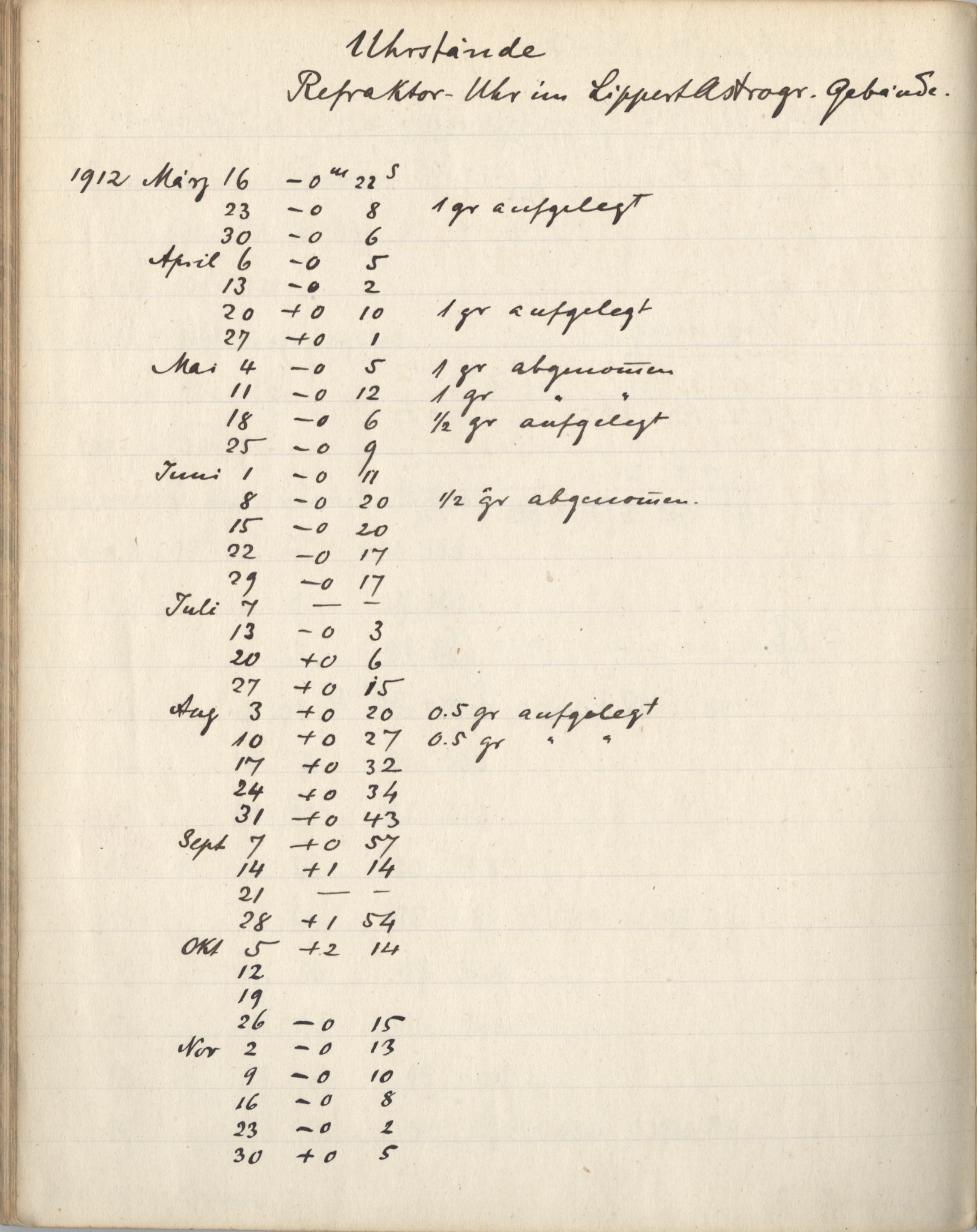 Uhrstände
Refraktor-Uhr im Lippert Astrogr. Gebäude.
1912 März 16 -0ᵐ 22ˢ
23 -0 8 1 gr aufgelegt
30 -0 6
April 6 -0 5
13 -0 2
20 +0 10 1 gr aufgelegt
27 +0 1
Mai 4 -0 5 1 gr abgenom̄en
11 -0 12 1 gr " "
18 -0 6 1/2 gr aufgelegt
25 -0 9
Juni 1 -0 11
8 -0 20 1/2 gr abgenom̄en.
15 -0 20
22 -0 17
29 -0 17
Juli 7 — –
13 -0 3
20 +0 6
27 +0 15
Aug 3 +0 20 0.5 gr aufgelegt
10 +0 27 0.5 gr " "
17 +0 32
24 +0 34
31 +0 43
Sept 7 +0 57
14 +1 14
21 — –
28 +1 54
Okt 5 +2 14
12
19
26 -0 15
Nov 2 -0 13
9 -0 10
16 -0 8
23 -0 2
30 +0 5